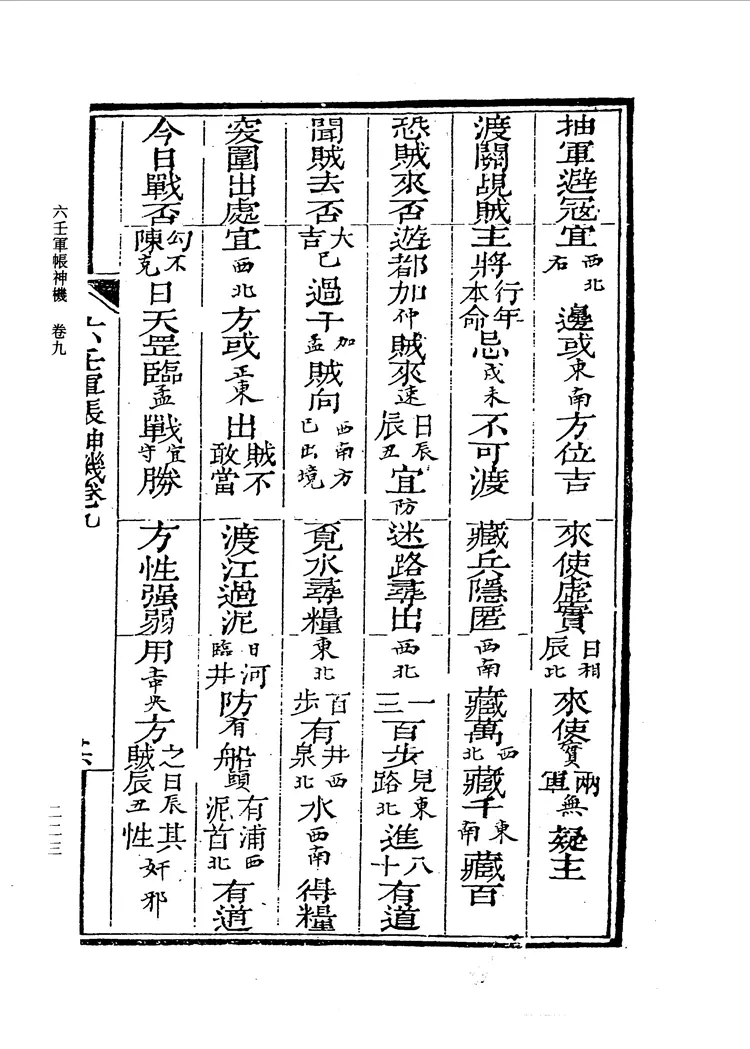 抽軍避冦宜西北石邊或東南方位吉
來使虛實日相辰比來使實兩軍無疑主
渡關覘賊主將行年本命忌戌未不可渡
藏兵隱匿西南藏萬西北藏千東南藏百
恐賊來否遊都加仲賊來速日辰辰丑宜防
迷路尋出西北一三百步見東路北進八十有道
聞賊去否大吉已過干加孟賊向西南方已出境
覓水尋糧東北百步有井西泉北水西南得糧
突圍出處宜西北方或正東出賊不敢當
渡江過泥日臨河井防有船頭有浦西泥首北有道
今日戰否勾陳不克日天罡臨孟戰宜守勝
方性强弱用方之日辰賊辰丑其性奸邪
六壬軍帳神機卷九
六壬軍帳神機 卷九
二二三